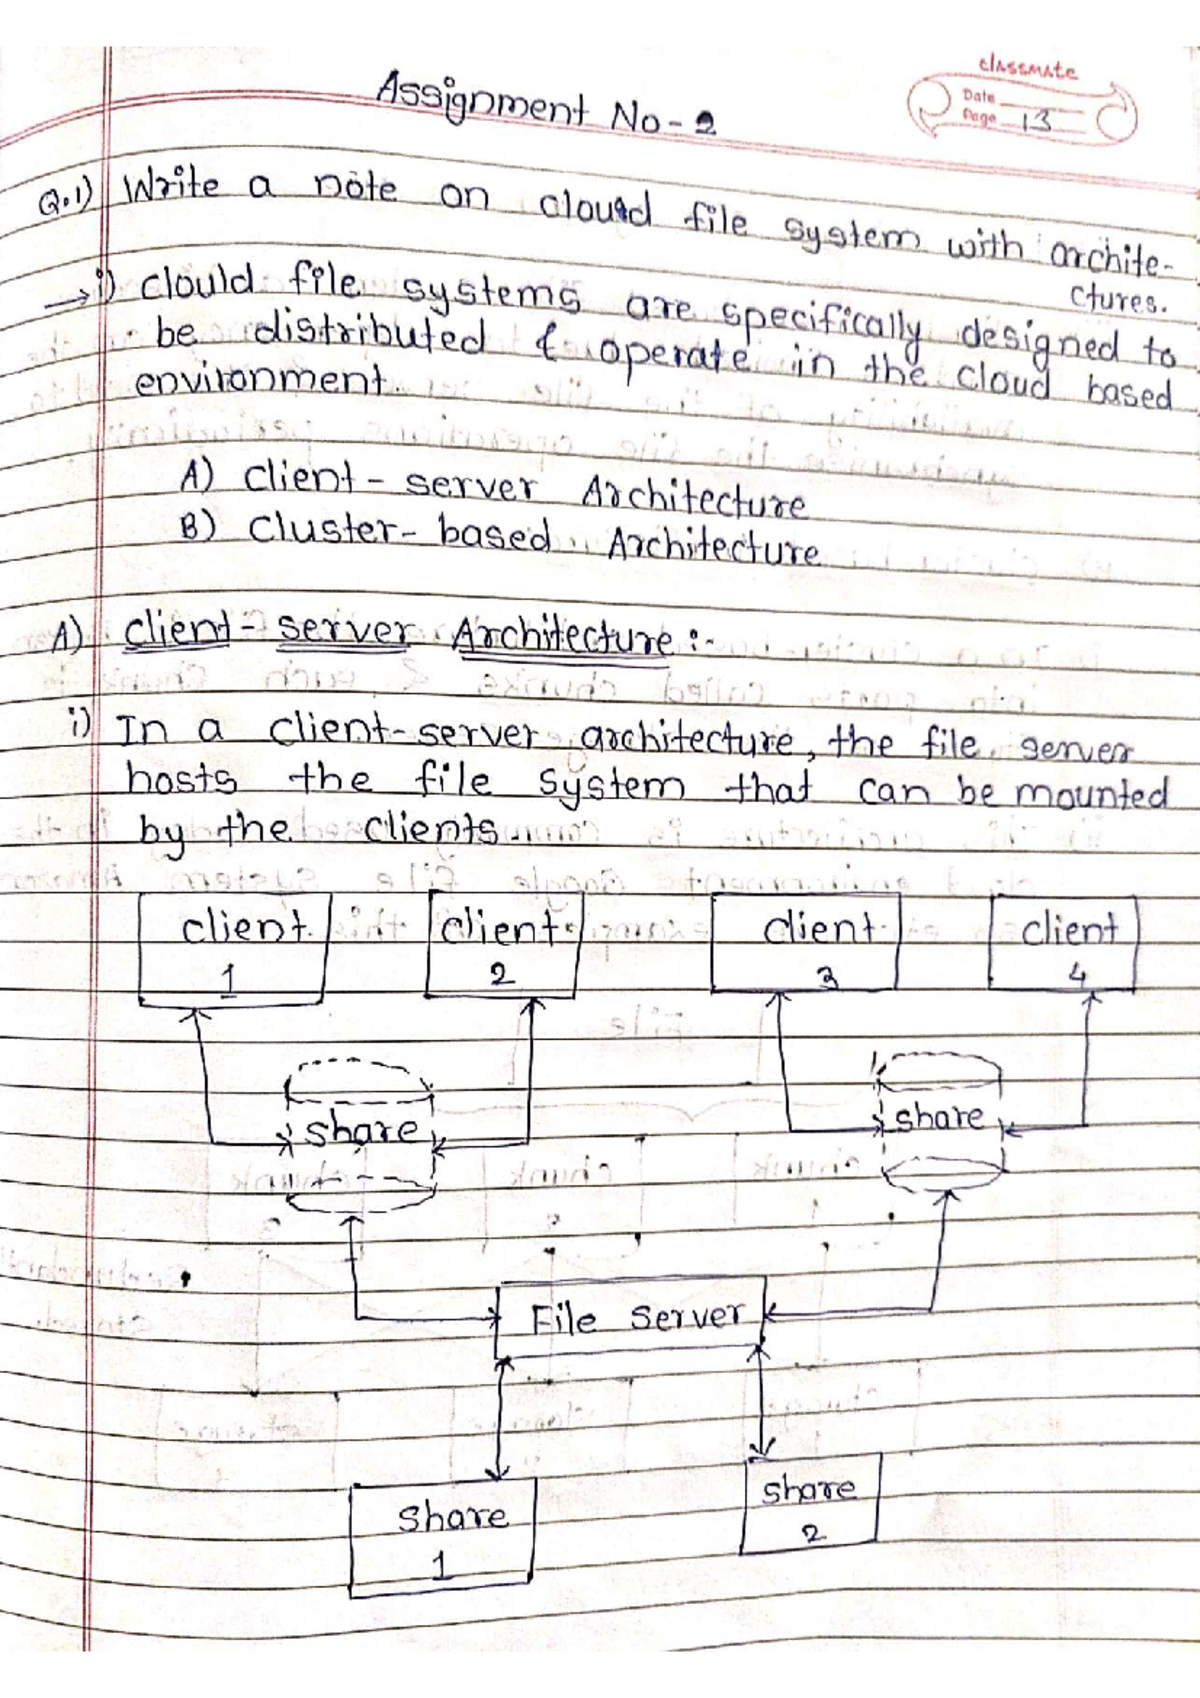 classmate
Date
Page 13
Assignment No-2
Q.1) Write a note on cloud file system with archite-
ctures.
→ i) clould file systems are specifically designed to
be distributed & operate in the cloud based
environment.
A) client - server Architecture
B) cluster - based Architecture
A) client - server Architecture :-
i) In a client-server architecture, the file server
hosts the file system that can be mounted
by the clients.
client 1
client 2
client 3
client 4
share
share
File Server
Share 1
share 2